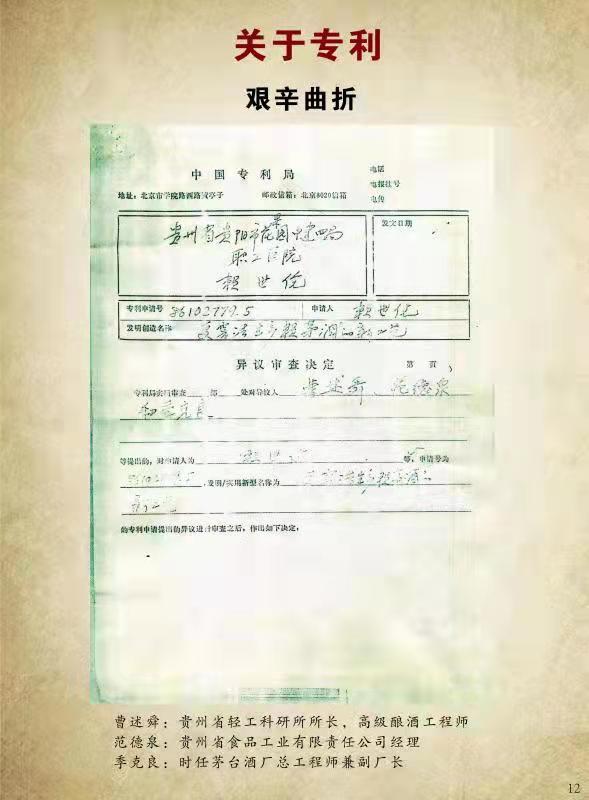 关于专利
艰辛曲折
中国专利局
电话
电报挂号
地址：北京市学院路西路黄亭子 邮政信箱：北京8020信箱
电传
发文日期
贵州省贵阳市花
职工医院
赖世伦
专利申请号 86102779.5 申请人 赖世伦
发明创造名称
异议审查决定 第 页
专利局实用审查 部 处对异议人 曹述舜、范德泉
和季克良
等提出的，对申请人为 等，申请号为
，发明/实用新型名称为
新工艺
的专利申请提出的异议进行审查之后，作出如下决定：
曹述舜：贵州省轻工科研所所长，高级酿酒工程师
范德泉：贵州省食品工业有限责任公司经理
季克良：时任茅台酒厂总工程师兼副厂长
12